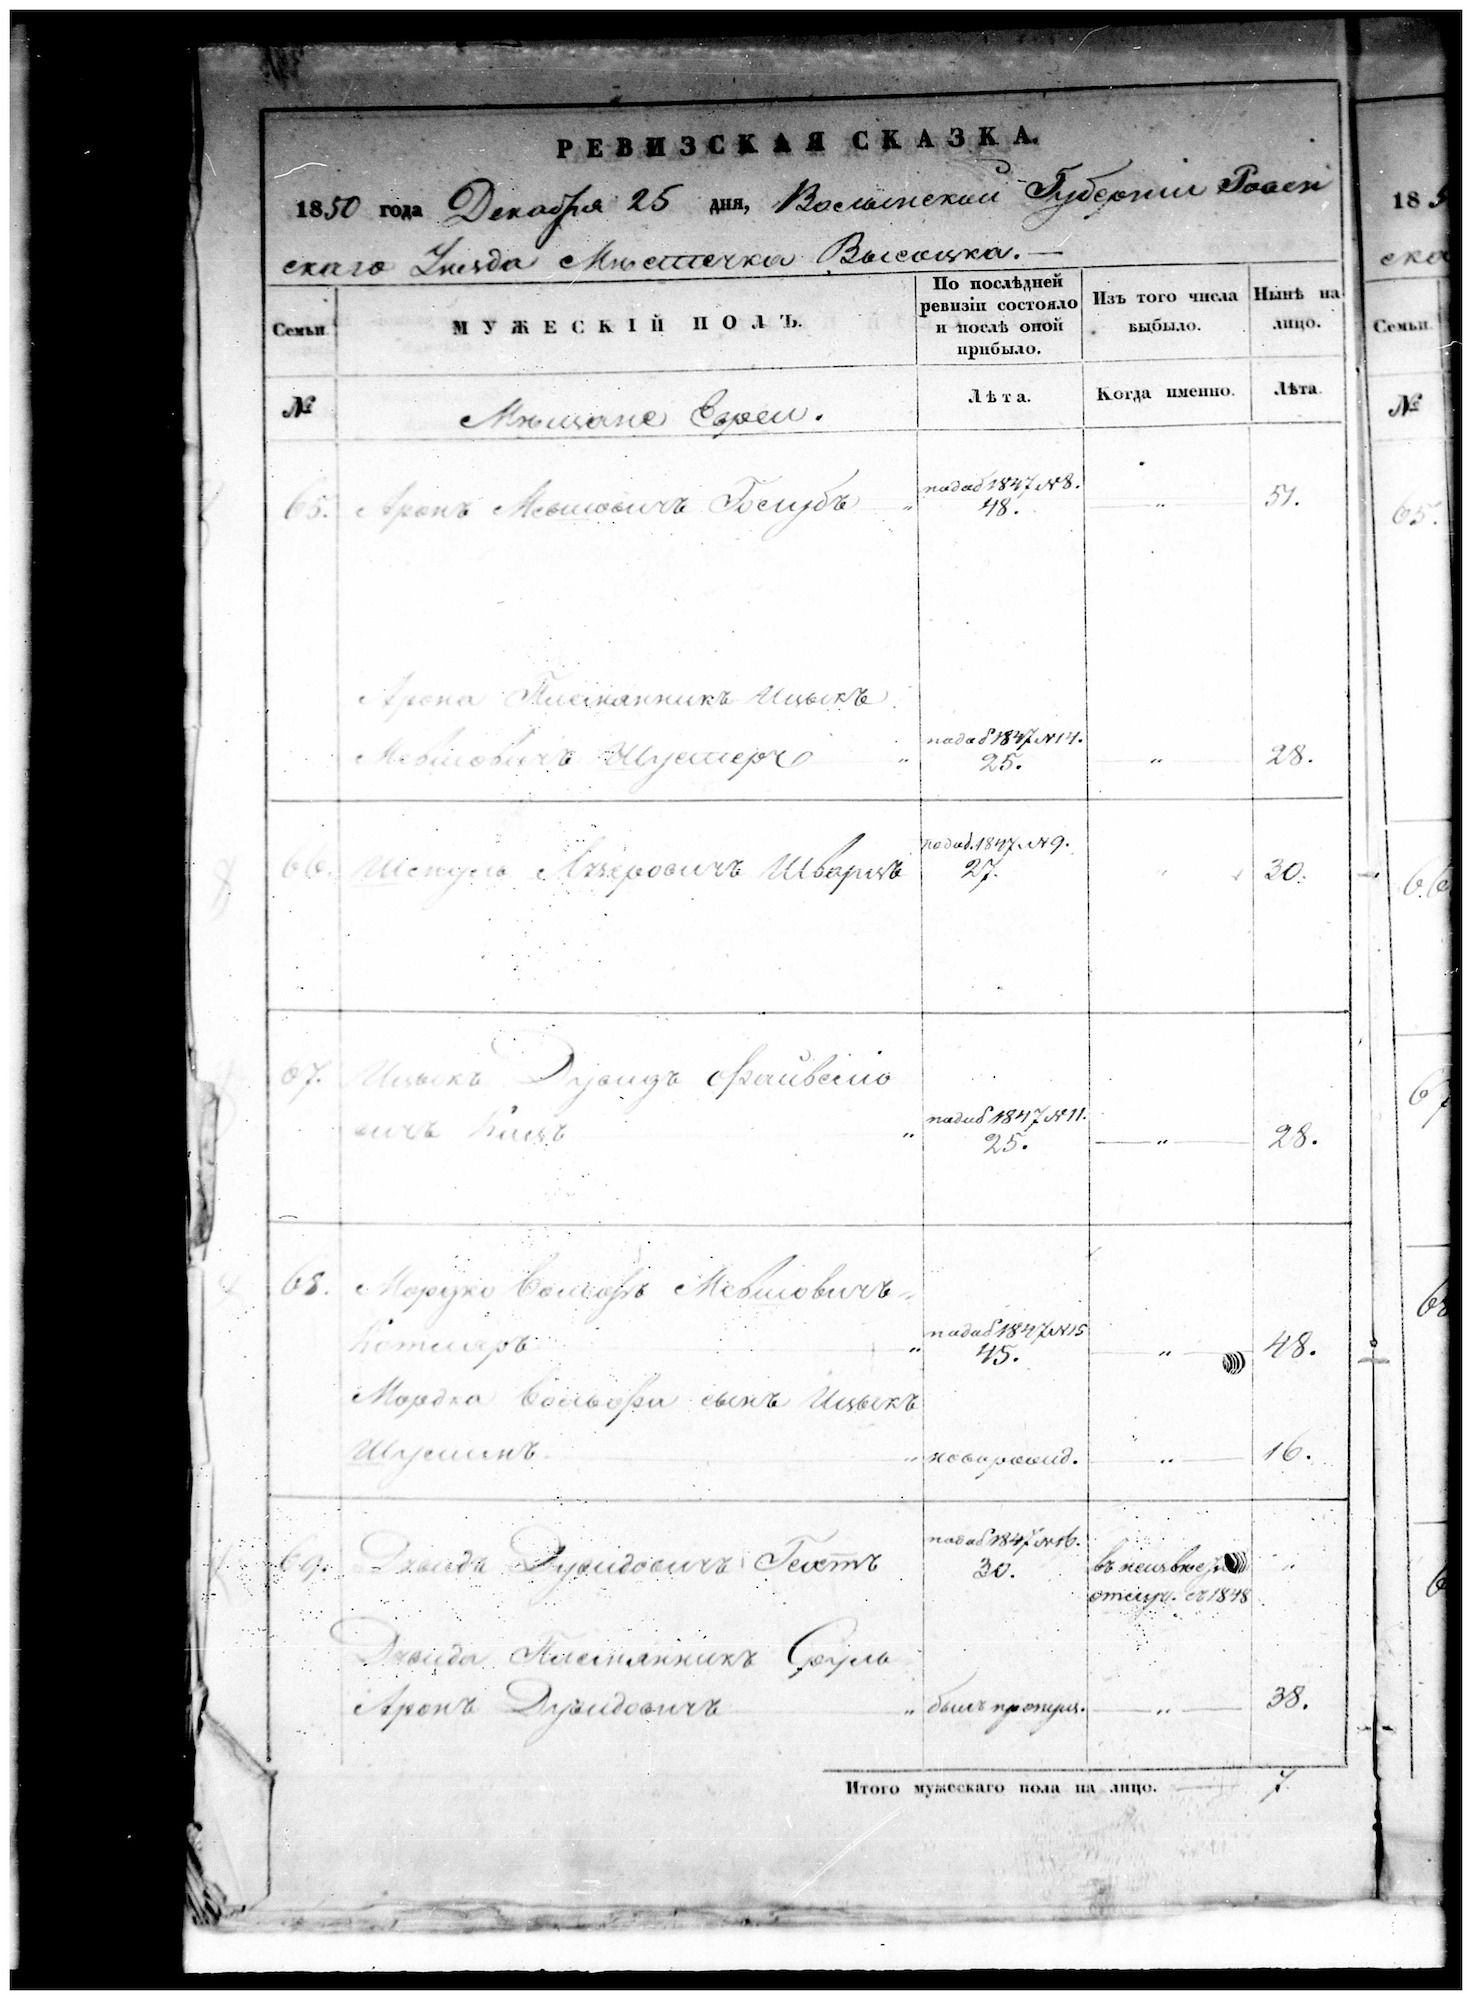 РЕВИЗСКАЯ СКАЗКА.
1850 года Декабря 25 дня, Волынской Губернiи Ровен
скаго Уѣзда Мѣстечка Высоцка.—
Семьи.
МУЖЕСКIЙ ПОЛЪ.
По послѣдней ревизiи состояло и послѣ оной прибыло.
Изъ того числа выбыло.
Нынѣ на лицо.
№
Мѣщане Евреи.
Лѣта.
Когда именно.
Лѣта.
65. Аронъ Мевшовичъ Голубъ „ 1847 №8. 48. „ 51.
Арона Племянникъ Ицыкъ
Мевшовичъ Шустеръ „ 1847 №14. 25. „ 28.
66. Лейзеровичъ Шварцъ 1847 №9. 27. „ 30.
67. Ицыкъ Дувидъ Файвелio
вичъ Кацъ „ 1847 №11. 25. „ 28.
68. Мордко Вольфъ Мевшовичъ
Котляръ „ 1847 №15 45. „ 48.
Мордка Вольфа сынъ Ицыкъ
„ новорожд. „ 16.
69. Давидъ Дувидовичъ 1847 №16. 30. въ неизвѣст „
отлуч. съ 1848
Давида Племянникъ Сруль
Аронъ Дувидовичъ „ былъ пропущ. „ 38.
Итого мужескаго пола на лицо. 7
18 5
ска
Семьи.
№
65.
66
67
68
6